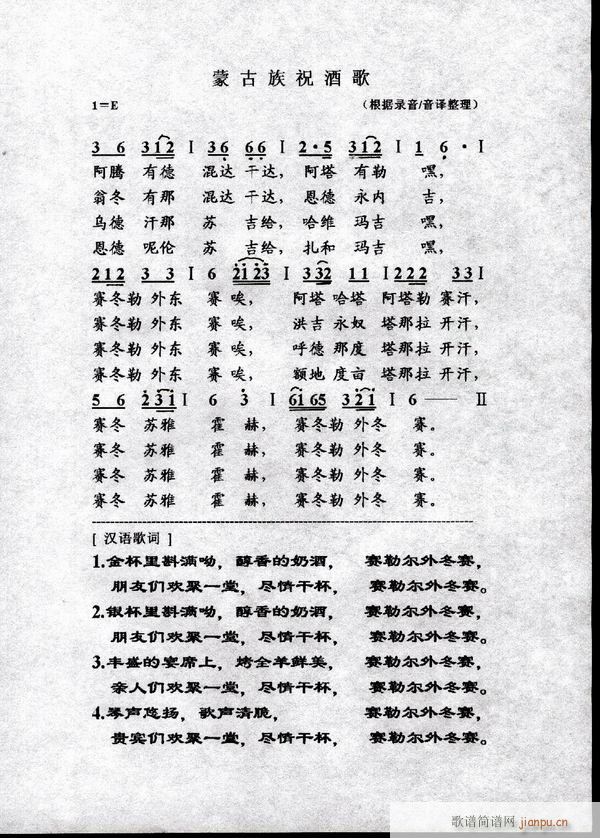 蒙古族祝酒歌
1=E （根据录音/音译整理）
3 6 312 | 36 66 | 2·5 312 | 1 6· |
阿腾 有德 混达 干达, 阿塔 有勒 嘿,
翁冬 有那 混达 干达, 恩德 永内 吉,
乌德 汗那 苏 吉给, 哈维 玛吉 嘿,
恩德 呢伦 苏 吉给, 扎和 玛吉 嘿,
212 3 3 | 6 2123 | 332 11 | 222 33 |
赛冬勒 外东 赛 唉, 阿塔 哈塔 阿塔勒 赛汗,
赛冬勒 外东 赛 唉, 洪吉 永奴 塔那拉 开汗,
赛冬勒 外东 赛 唉, 呼德 那度 塔那拉 开汗,
赛冬勒 外东 赛 唉, 额地 度亩 塔那拉 开汗,
5 6 231 | 6 3· | 6165 321 | 6 —— ||
赛冬 苏雅 霍 赫, 赛冬勒 外冬 赛。
赛冬 苏雅 霍 赫, 赛冬勒 外冬 赛。
赛冬 苏雅 霍 赫, 赛冬勒 外冬 赛。
赛冬 苏雅 霍 赫, 赛冬勒 外冬 赛。
[ 汉语歌词 ]
1.金杯里斟满呦, 醇香的奶酒, 赛勒尔外冬赛,
朋友们欢聚一堂, 尽情干杯, 赛勒尔外冬赛。
2.银杯里斟满呦, 醇香的奶酒, 赛勒尔外冬赛,
朋友们欢聚一堂, 尽情干杯, 赛勒尔外冬赛。
3.丰盛的宴席上, 烤全羊鲜美, 赛勒尔外冬赛,
亲人们欢聚一堂, 尽情干杯, 赛勒尔外冬赛。
4.琴声悠扬, 歌声清脆, 赛勒尔外冬赛,
贵宾们欢聚一堂, 尽情干杯, 赛勒尔外冬赛。
歌谱简谱网
jianpu.cn